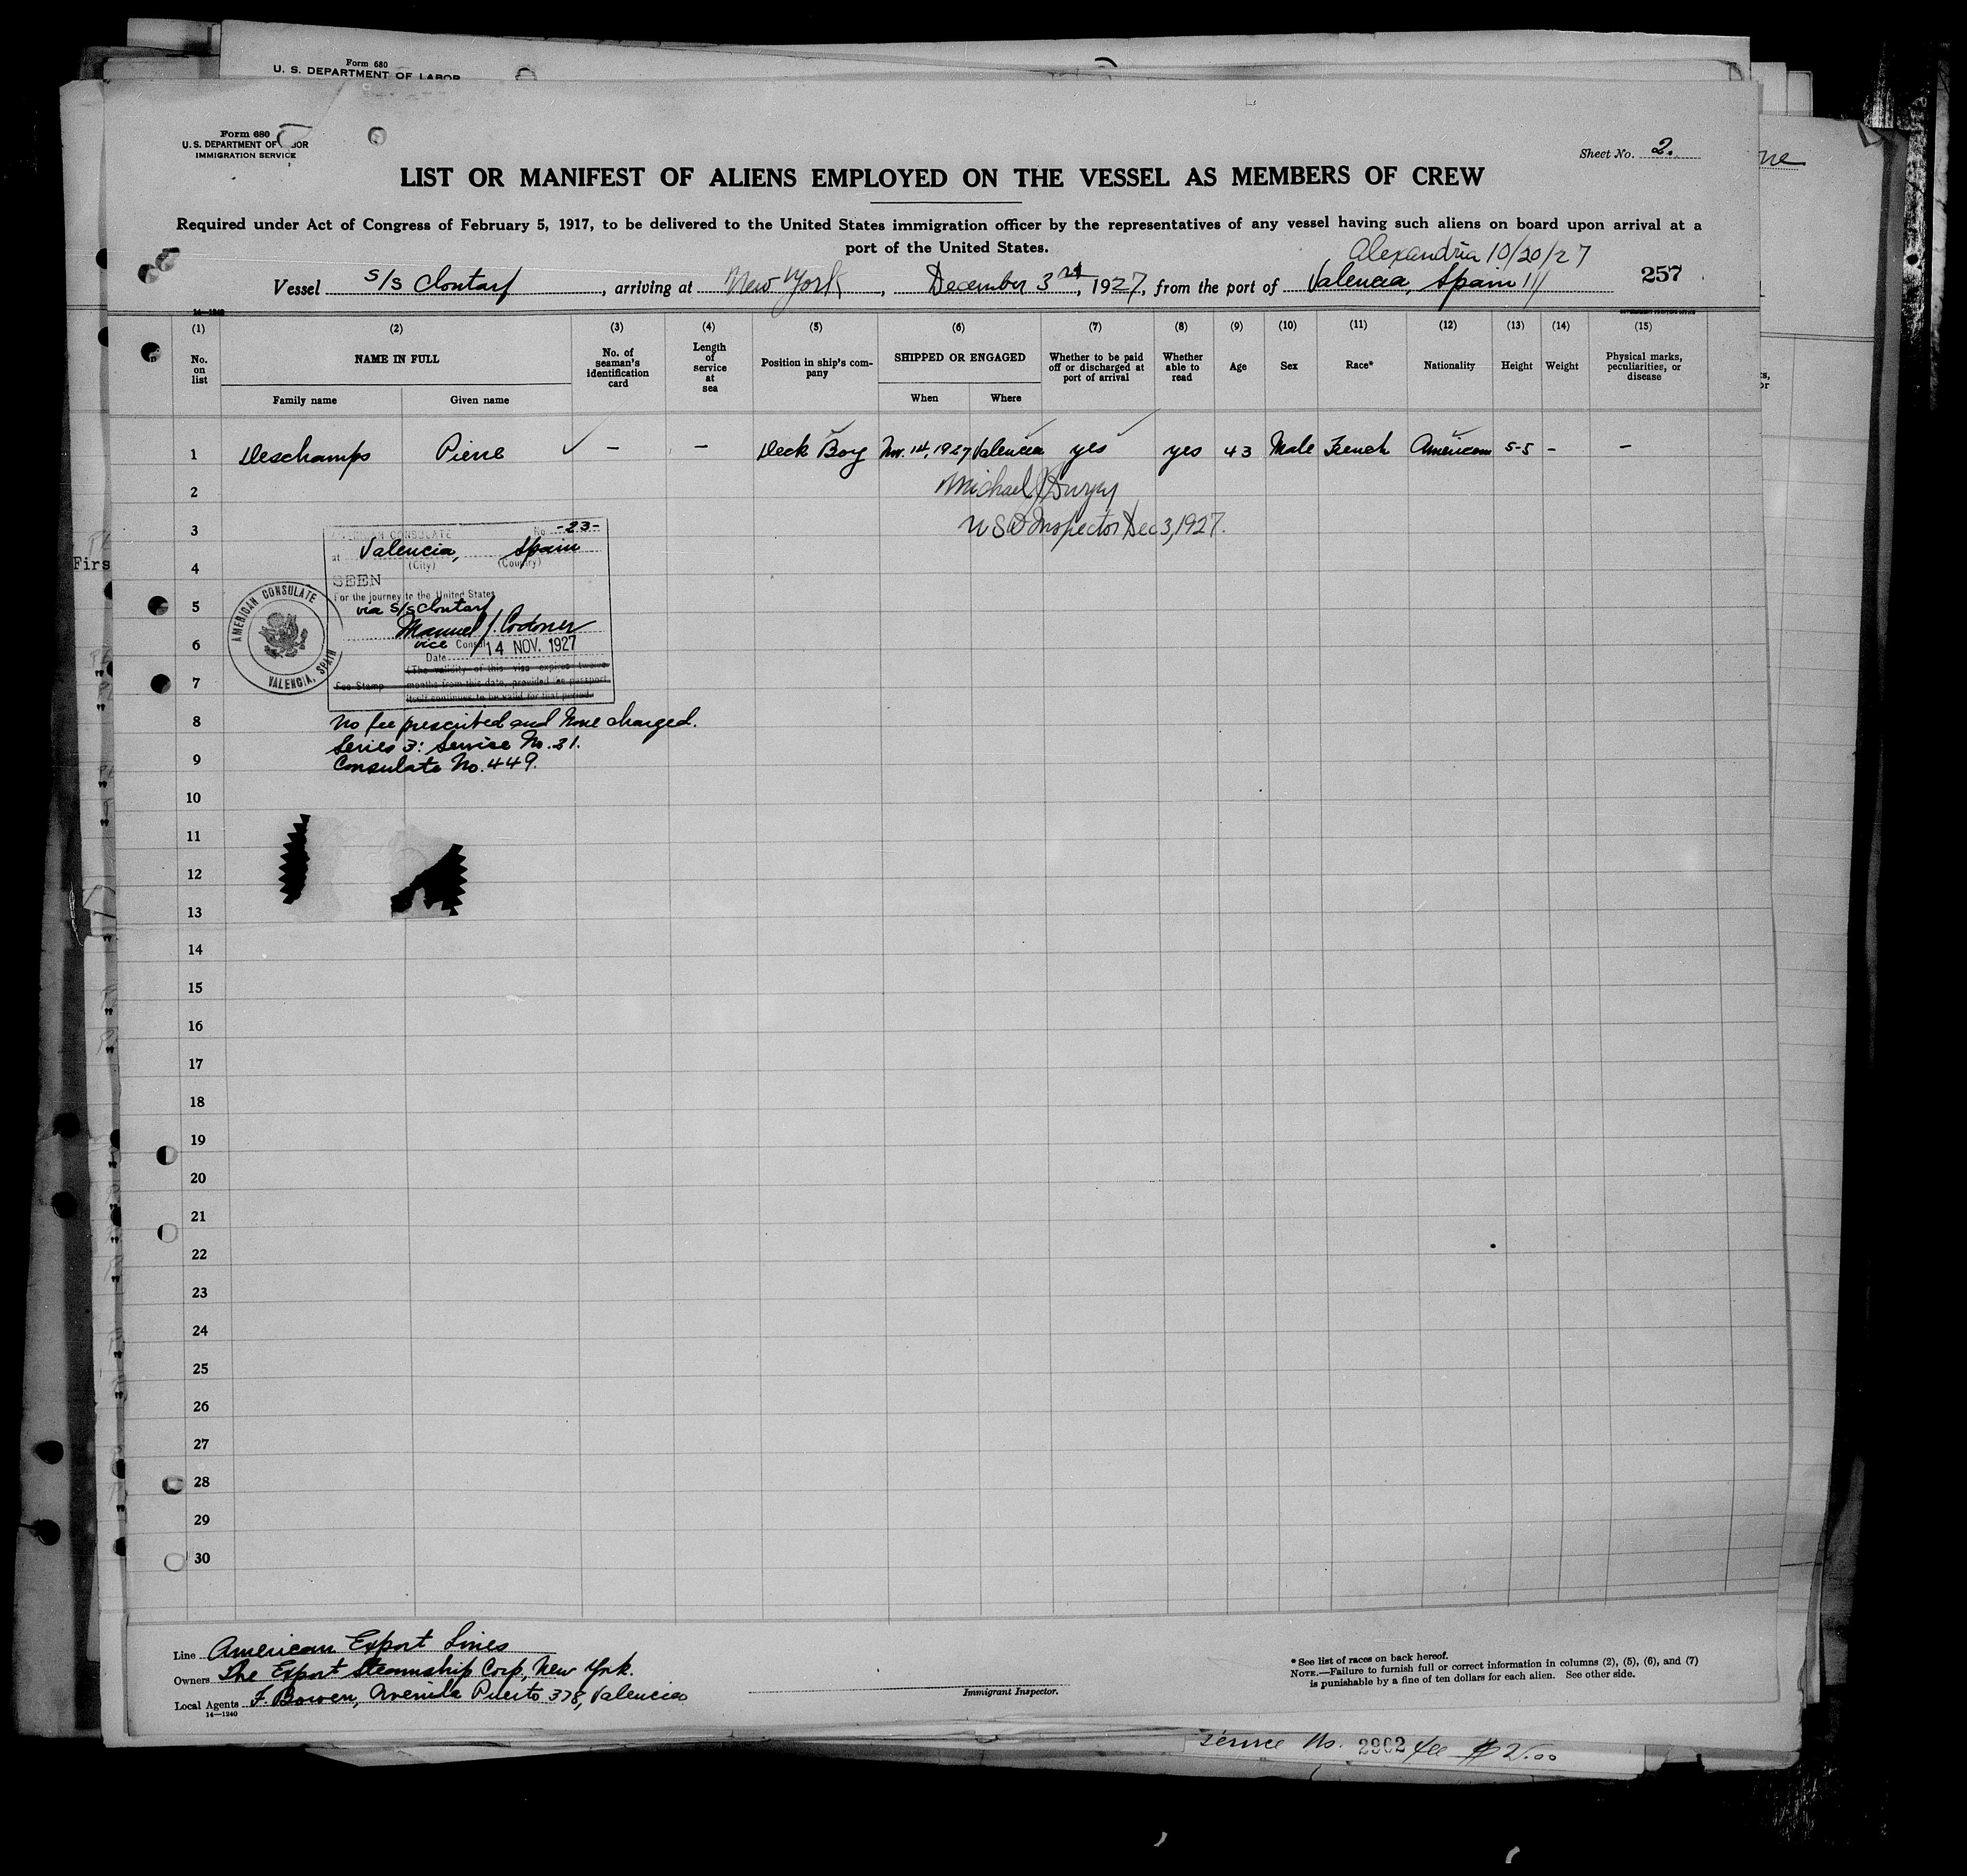 Form 680
U. S. DEPARTMENT OF LABOR
Form 680
U. S. DEPARTMENT OF LABOR
IMMIGRATION SERVICE
Sheet No. 2.
LIST OR MANIFEST OF ALIENS EMPLOYED ON THE VESSEL AS MEMBERS OF CREW
Required under Act of Congress of February 5, 1917, to be delivered to the United States immigration officer by the representatives of any vessel having such aliens on board upon arrival at a
port of the United States.
Alexandria 10/20/27
Vessel S/S Clontarf, arriving at New York, December 3rd, 1927, from the port of Valencia, Spain
257
14-1240
(1) (2) (3) (4) (5) (6) (7) (8) (9) (10) (11) (12) (13) (14) (15)
No. on list
NAME IN FULL
Family name
Given name
No. of seaman's identification card
Length of service at sea
Position in ship's company
SHIPPED OR ENGAGED
When
Where
Whether to be paid off or discharged at port of arrival
Whether able to read
Age
Sex
Race*
Nationality
Height
Weight
Physical marks, peculiarities, or disease
1 Deschamps Pierre ✓ – – Deck Boy Nov. 14, 1927 Valencia yes yes 43 Male French American 5-5 – –
2
Michael J
3
U S Inspector Dec 3, 1927.
AMERICAN CONSULATE No. -23-
at Valencia, Spain
(City) (Country)
4
SEEN
For the journey to the United States
5
via S/S Clontarf
Manuel J. Codoner
6
vice Consul
Date 14 NOV. 1927
AMERICAN CONSULATE
VALENCIA, SPAIN
(The validity of this visa expires twelve
7
Fee Stamp months from this date, provided the passport
itself continues to be valid for that period.
8
No fee prescribed and none charged.
Series 3: Service No. 31.
9
Consulate No. 449.
10
11
12
13
14
15
16
17
18
19
20
21
22
23
24
25
26
27
28
29
30
Line American Export Lines
Owners The Export Steamship Corp, New York.
Local Agents F Bowen, Avenida Puerto 378, Valencia
14—1240
Immigrant Inspector.
* See list of races on back hereof.
NOTE.—Failure to furnish full or correct information in columns (2), (5), (6), and (7)
is punishable by a fine of ten dollars for each alien. See other side.
Service No. 2902 fee $2.00
Firs